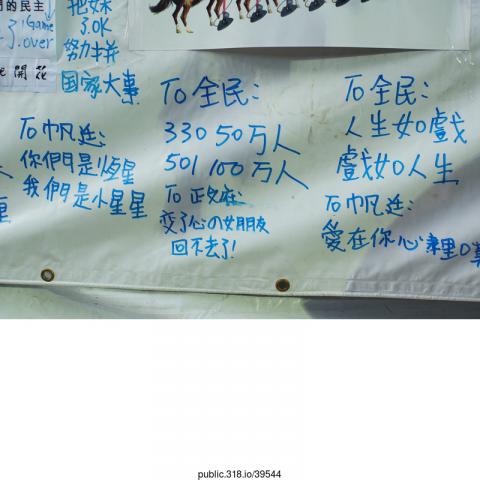 的民主
Game
over
開花
3.0K
努力拼
国家大事
To帆廷:
你們是恆星
我們是小星星
To全民:
330 50万人
501 100万人
To政府:
变了心の女朋友
回不去了!
To全民:
人生如戲
戲如人生
To帆廷:
愛在你心裡口
public.318.io/39544